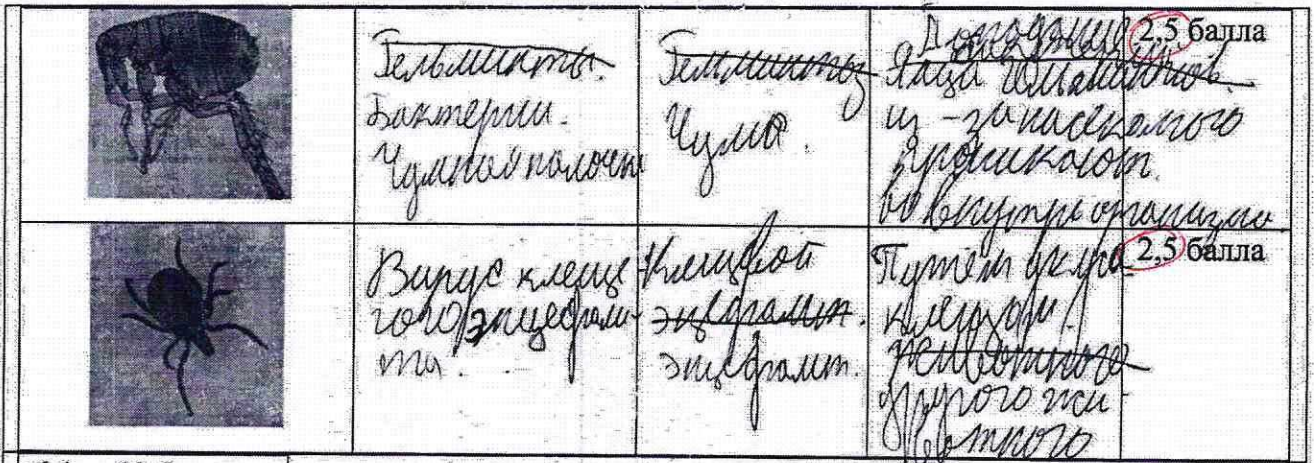 Гельминты.
Бактерии.
Чумной палочки
Гельминты
Чума.
Яйца
из-за насекомого
проникают
во внутрь организма
2,5 балла
Вирус клеще
того энцефали-
та.
Клещевой
энцефалит.
энцефалит.
Путём укуса
клещом
животного
другого жи-
вотного
2,5 балла